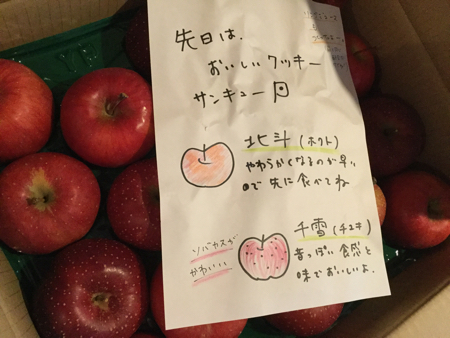 先日は、
おいしいクッキー
サンキュー
北斗(ホクト)
やわらかくなるのが早い
ので先に食べてね
千雪(チユキ)
昔っぽい食感と
味でおいしいよ.
ソバカスが
かわいい